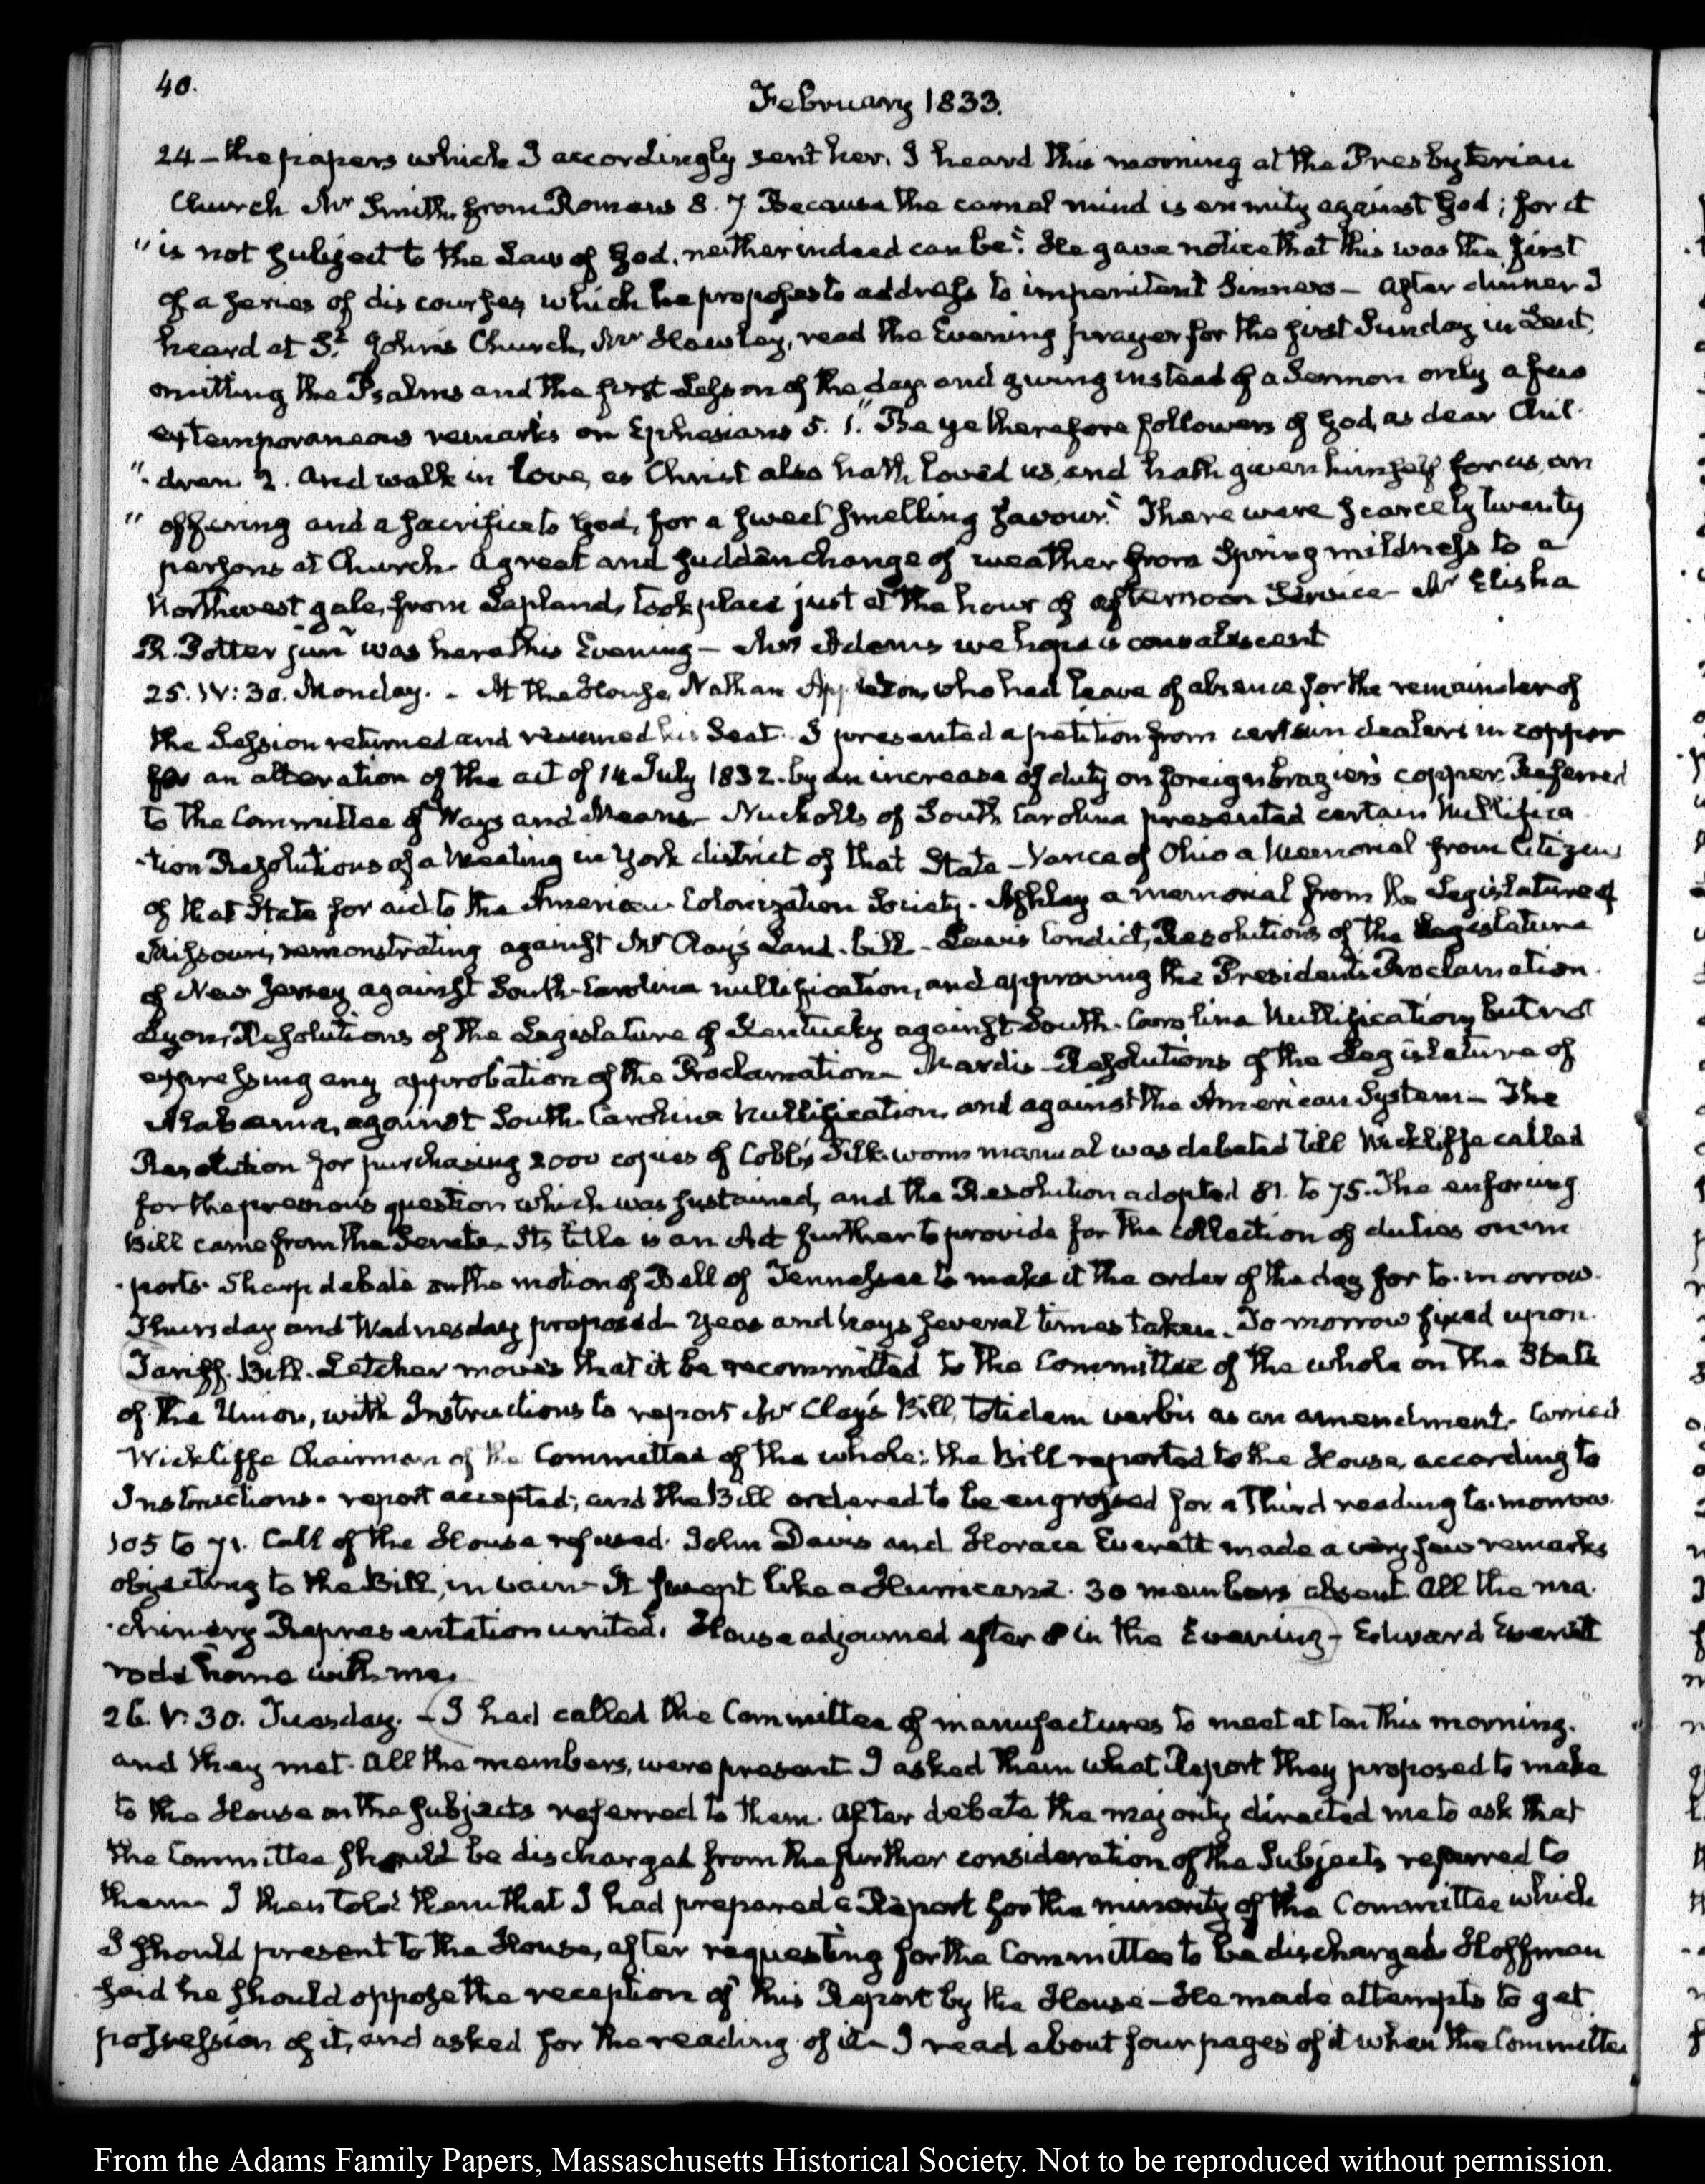 40.
February 1833.
24 – the papers which I accordingly sent her. I heard this morning at the Presbyterian
Church Mr Smith from Romans 8. 7 Because the carnal mind is enmity against God; for it
" is not subject to the Law of God, neither indeed can be". He gave notice that this was the first
of a series of discourses which he proposes to address to impenitent Sinners – After dinner I
heard at St. John's Church, Mr Hawley, read the Evening prayer for the first Sunday in Lent,
omitting the Psalms and the first Lesson of the day and giving instead of a Sermon only a few
extemporaneous remarks on Ephesians 5. 1. "Be ye therefore followers of God, as dear Chil-
"- dren. 2. And walk in love, as Christ also hath loved us, and hath given himself for us, an
" offering and a sacrifice to God, for a sweet smelling savour." There were scarcely twenty
persons at Church. A great and sudden change of weather from Spring mildness to a
Northwest gale, from Lapland, took place just at the hour of afternoon Service – Mr Elisha
R. Potter junr was here this Evening – Mrs Adams we hope is convalescent
25. IV: 30. Monday. – At the House, Nathan Appleton, who had leave of absence for the remainder of
the Session returned and resumed his Seat. I presented a petition from certain dealers in copper
for an alteration of the act of 14 July 1832. by an increase of duty on foreign brazier's copper. Referred
to the Committee of Ways and Means – Nuckolls of South Carolina presented certain Nullifica
-tion Resolutions of a Meeting in York district of that State – Vance of Ohio a Memorial from Citizens
of that State for aid to the American Colonization Society. Ashley a memorial from the Legislature of
Missouri, remonstrating against Mr Clay's Land-bill – Lewis Condict, Resolutions of the Legislature
of New Jersey against South-Carolina nullification, and approving the President's Proclamation.
Lyon, Resolutions of the Legislature of Kentucky against South-Carolina Nullification, but not
expressing any approbation of the Proclamation – Mardis – Resolutions of the Legislature of
Alabama, against South-Carolina Nullification, and against the American System – The
Resolution for purchasing 2000 copies of Cobb's Silk-worm manual was debated till Wickliffe called
for the previous question which was sustained, and the Resolution adopted 81. to 75. The enforcing
Bill came from the Senate. Its title is an Act further to provide for the collection of duties on im
-ports. Sharp debate on the motion of Bell of Tennessee to make it the order of the day for to-morrow.
Thursday and Wednesday proposed – Yeas and Nays several times taken. To morrow fixed upon.
Tariff-Bill. Letcher moves that it be recommitted to the Committee of the whole on the State
of the Union, with Instructions to report Mr Clay's Bill, totidem verbis as an amendment. Carried
Wickliffe Chairman of the Committee of the whole: the Bill reported to the House, according to
Instructions. report accepted, and the Bill ordered to be engrossed for a third reading to-morrow.
105 to 71. Call of the House refused. John Davis and Horace Everett made a very few remarks
objecting to the Bill, in vain – It swept like a Hurricane. 30 members absent. All the ma-
-chinery Representation united. House adjourned after 8 in the Evening – Edward Everett
rode home with me.
26. V: 30. Tuesday. – I had called the Committee of manufactures to meet at ten this morning.
and they met. All the members, were present. I asked them what Report they proposed to make
to the House on the subjects referred to them. After debate the majority directed me to ask that
the Committee should be discharged from the further consideration of the Subjects referred to
them – I then told them that I had prepared a Report for the minority of the Committee which
I should present to the House, after requesting for the Committee to be discharged. Hoffman
said he should oppose the reception of this Report by the House – He made attempts to get
possession of it, and asked for the reading of it – I read about four pages of it when the Committee
From the Adams Family Papers, Massaschusetts Historical Society. Not to be reproduced without permission.